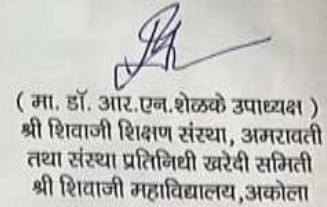 ( मा. डॉ. आर.एन.शेळके उपाध्यक्ष )
श्री शिवाजी शिक्षण संस्था, अमरावती
तथा संस्था प्रतिनिधी खरेदी समिती
श्री शिवाजी महाविद्यालय,अकोला